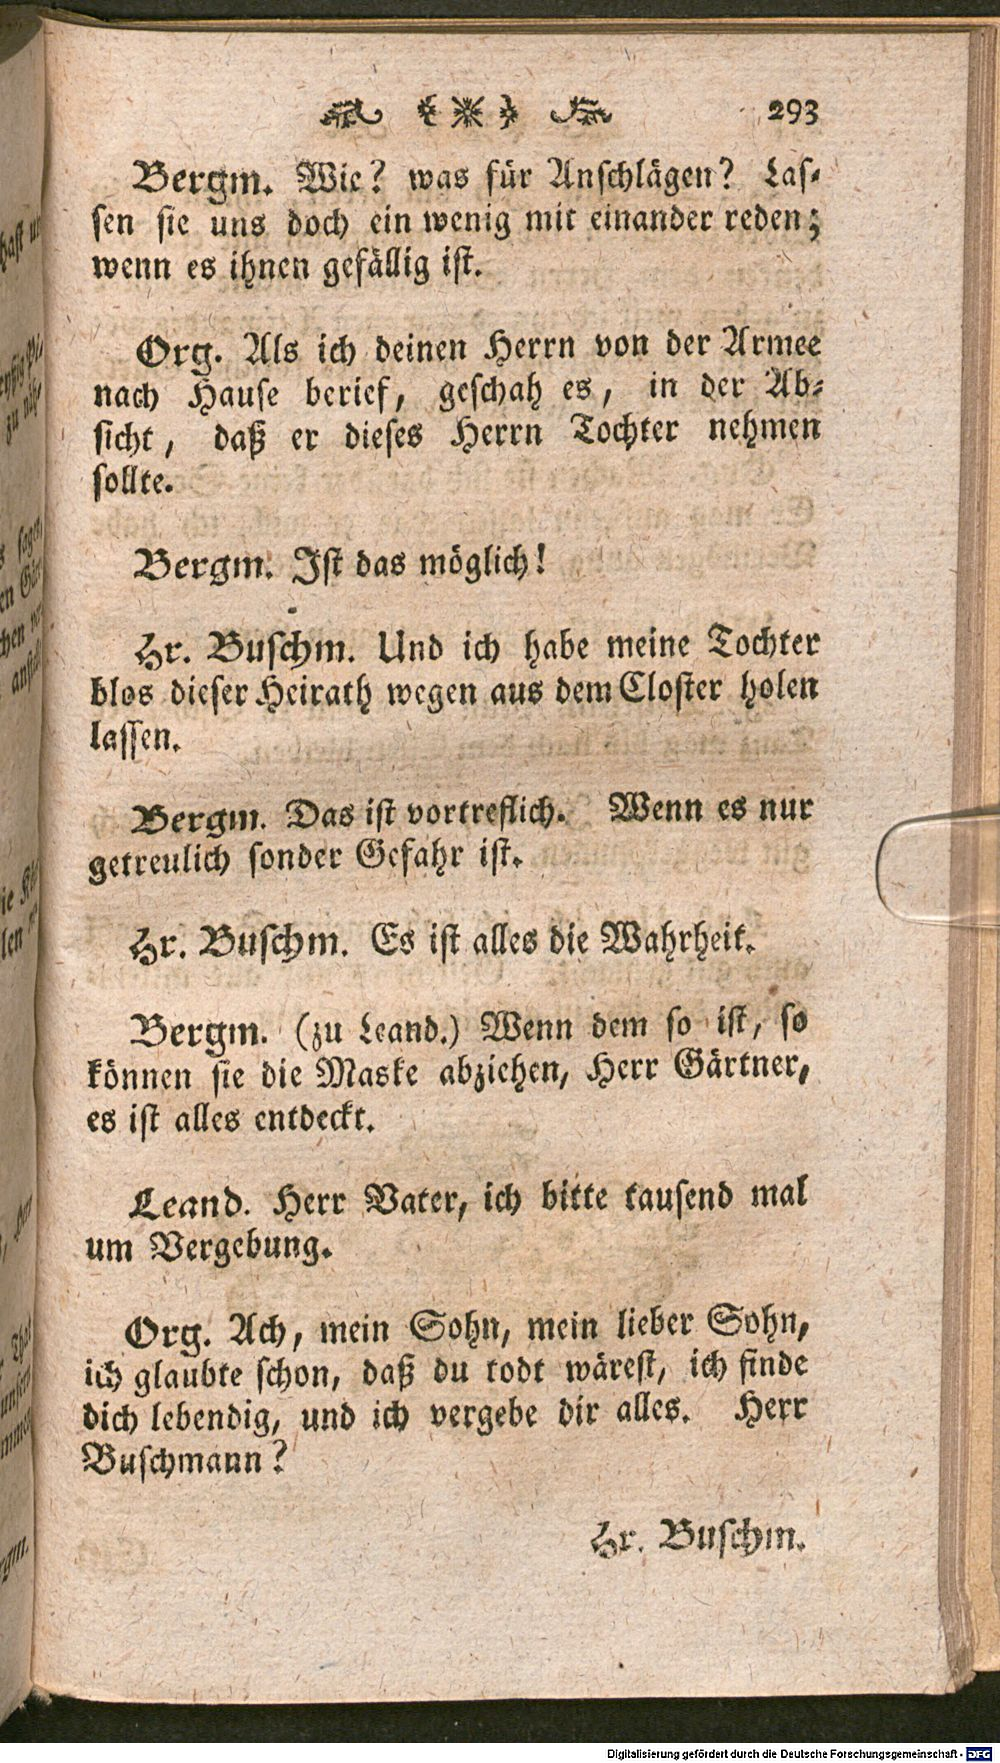 293
Bergm. Wie? was für Anschlägen? Las-
sen sie uns doch ein wenig mit einander reden;
wenn es ihnen gefällig ist.
Org. Als ich deinen Herrn von der Armee
nach Hause berief, geschah es, in der Ab-
sicht, daß er dieses Herrn Tochter nehmen
sollte.
Bergm. Ist das möglich!
Hr. Buschm. Und ich habe meine Tochter
blos dieser Heirath wegen aus dem Closter holen
lassen.
Bergm. Das ist vortreflich. Wenn es nur
getreulich sonder Gefahr ist.
Hr. Buschm. Es ist alles die Wahrheit.
Bergm. (zu Leand.) Wenn dem so ist, so
können sie die Maske abziehen, Herr Gärtner,
es ist alles entdeckt.
Leand. Herr Vater, ich bitte tausend mal
um Vergebung.
Org. Ach, mein Sohn, mein lieber Sohn,
ich glaubte schon, daß du todt wärest, ich finde
dich lebendig, und ich vergebe dir alles. Herr
Buschmann?
Hr. Buschm.
Digitalisierung gefördert durch die Deutsche Forschungsgemeinschaft - DFG